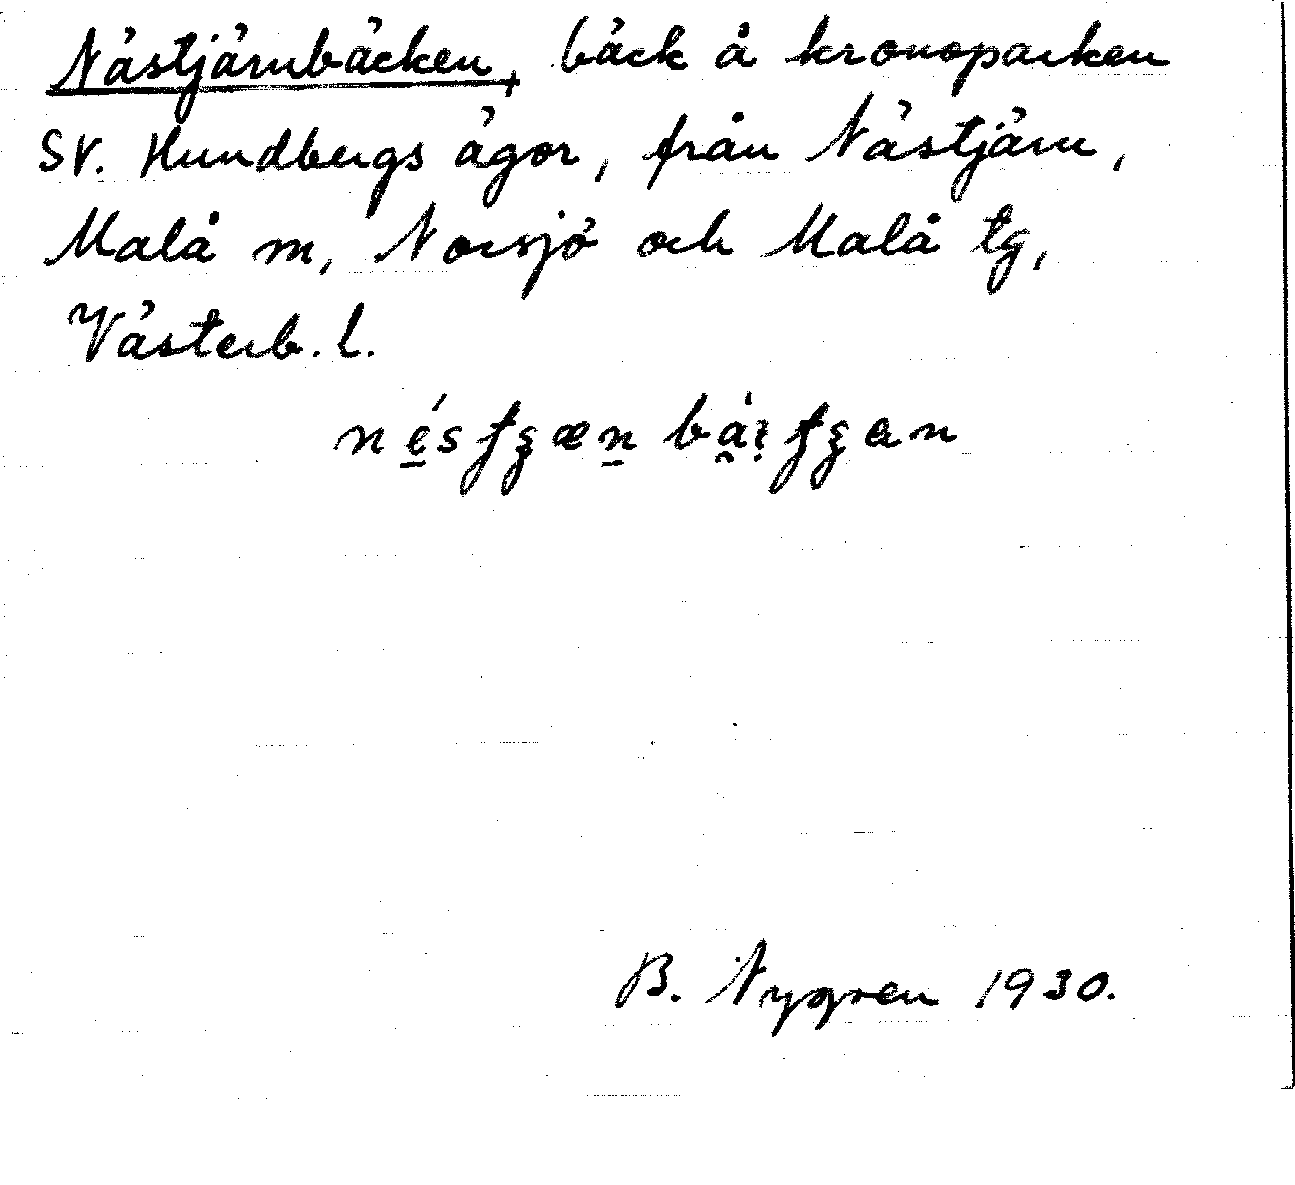 Nästjärnbäcken, bäck å kronoparken
SV. Hundbergs ägor, från Nästjärn,
Malå m, Norsjö och Malå tg,
Västerb. l.
B. Nygren 1930.